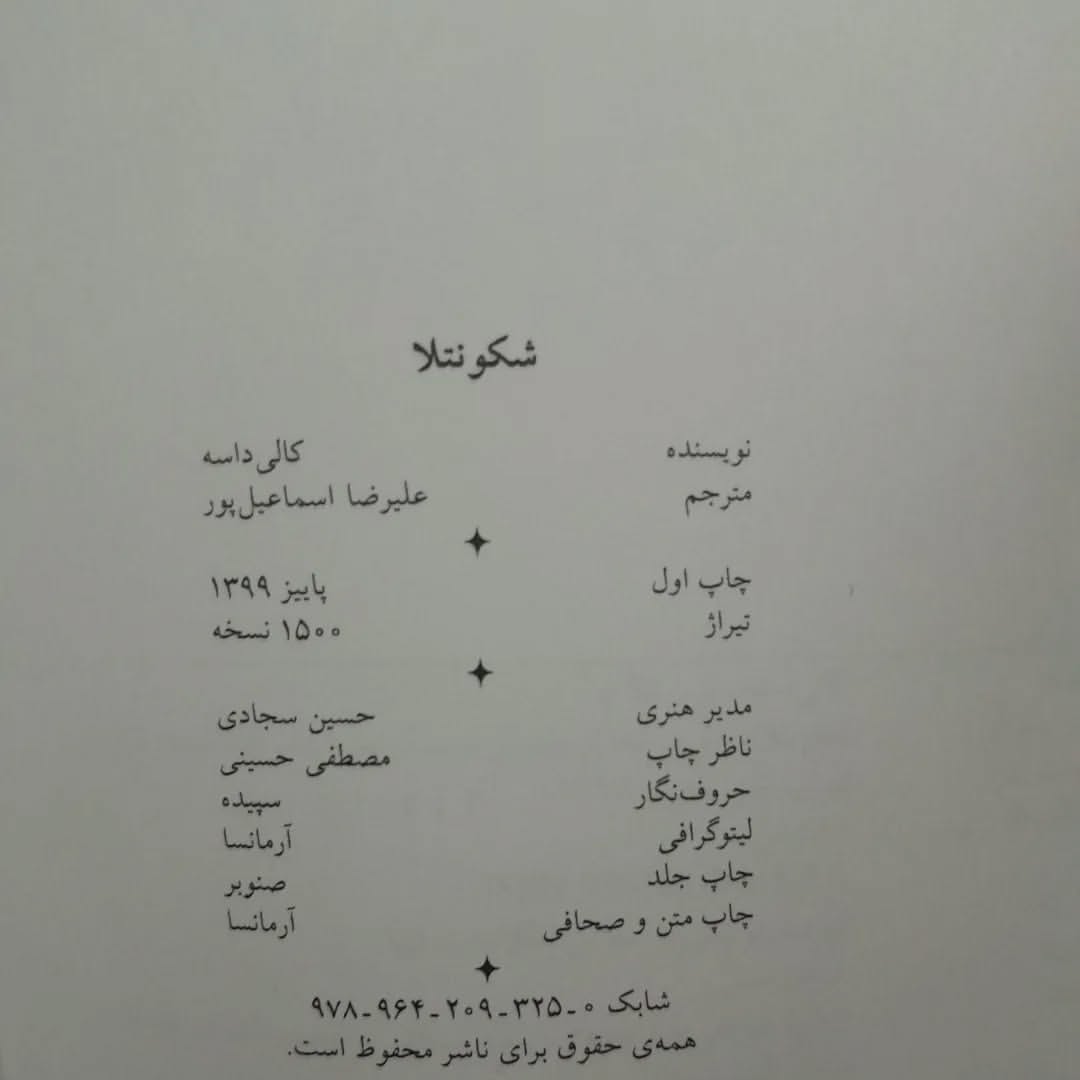 شکونتلا
نویسنده کالی‌داسه
مترجم علیرضا اسماعیل‌پور
چاپ اول پاییز ۱۳۹۹
تیراژ ۱۵۰۰ نسخه
مدیر هنری حسین سجادی
ناظر چاپ مصطفی حسینی
حروف‌نگار سپیده
لیتوگرافی آرمانسا
چاپ جلد صنوبر
چاپ متن و صحافی آرمانسا
شابک ۰-۳۲۵-۲۰۹-۹۶۴-۹۷۸
همه‌ی حقوق برای ناشر محفوظ است.